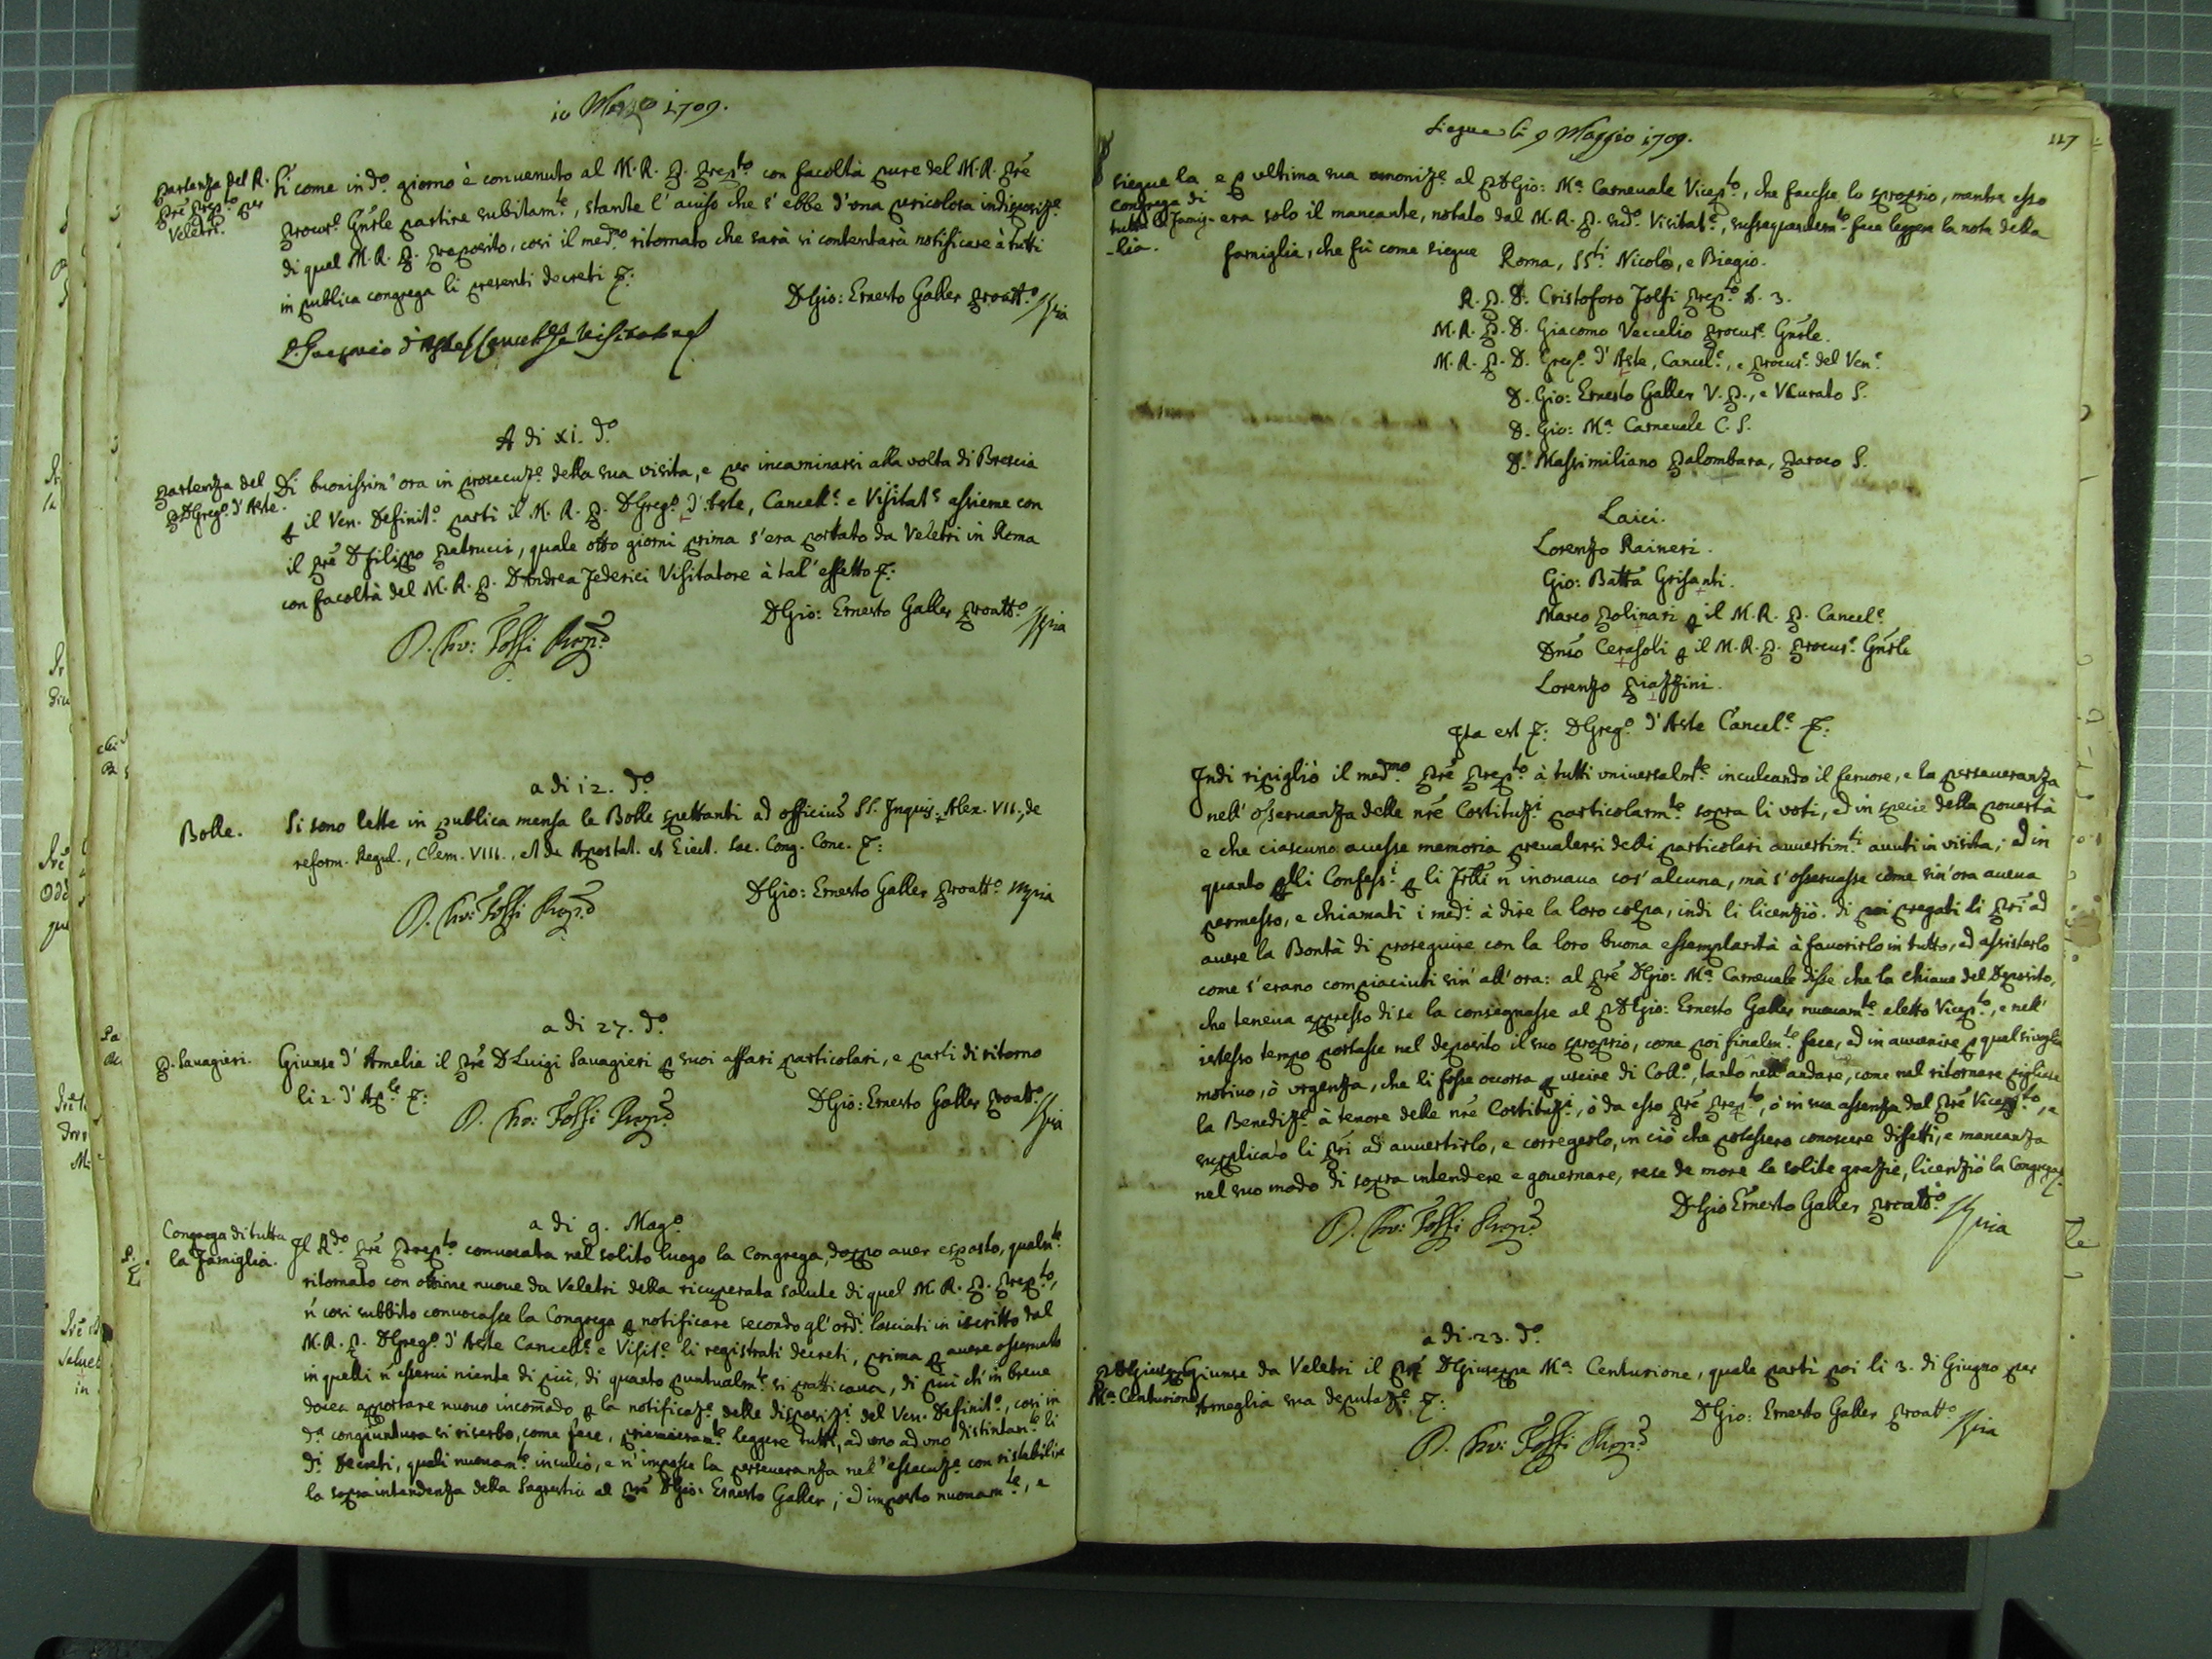 10 Marzo 1709.
Partenza del R.
Prē Prepto per
Veletri.
Sì come in do. giorno è convenuto al M. R. P. Prepto con facoltà pure del M. R. Prē
Procure Gnrle partire subitamte, stante l'aviso che s'ebbe d'una pericolosa indisposize
di quel M. R. P. Preposito, così il medmo ritornato che sarà si contentarà notificare à tutti
in publica congrega li presenti decreti
D Gio: Ernesto Galler Proatto
A di XI. do
Partenza del
P D Grego d'Aste.
Di buonissim'ora in prosecuze della sua visita, e per incaminarsi alla volta di Brescia
p il Ven. Definito partì il M. R. P. D Grego d'Aste, Cancelle e Visitate assieme con
il Prē D Filippo Patrucci, quale otto giorni prima s'era portato da Veletri in Roma
con facoltà del M. R. P. D Andrea Federici Visitatore à tal'effetto
D Gio: Ernesto Galler Proatto
a di 12. do
Bolle.
Si sono lette in publica mensa le Bolle spettanti ad officiū SS. Inquis. Alex. VII., de
reform. Regul., Clem. VIII., et de Apostat. et Eiect. Sac. Cong. Conc.
D Gio: Ernesto Galler Proatto
a di 27. do
P. Savagieri.
Giunse d'Amelia il Prē D Luigi Savagieri p suoi affari particolari, e partì di ritorno
li 2. d'Aple
D Gio: Ernesto Galler Proatto
a di 9. Mago
Congrega di tutta
la Famiglia.
Il Rdo Prē Prepto convocata nel solito luogo la Congrega, doppo aver esposto, qualmte
ritornato con ottime nuove da Veletri della ricuperata salute di quel M. R. P. Prepto,
n̄ così subbito convocasse la Congrega p notificare secondo gl'ordi lasciati in iscritto dal
M. R. P. D Grego d'Aste Cancelle e Visite li registrati decreti, prima p avere osservato
in quelli n̄ esservi niente di più, di quanto puntualmte si pratticava, di più ch'in breve
dovea apportare nuovo incom̄odo p la notificaze delle disposizi del Ven. Definito, così in
da congiuntura si riserbò, come fece, primieramte leggere tutti, ad uno ad uno distintamte li
di Decreti, quali nuovamte inculcò, e n'impose la perseveranza nel'essecuze con ristabilire
la sopraintendenza della Sagrestia al Prē D Gio: Ernesto Galler, ed imposto nuovamte, e
Siegue li 9 Maggio 1709.
127
Siegue la
Congrega di
tutta la Famig-
-lia.
e p ultima sua ammonize al P D Gio: Ma Carnevale Vicepto, che facesse lo sproprio, mentre esso
era solo il mancante, notato dal M. R. P. sudo Visitate, susseguentemte fece leggere la nota della
famiglia, che fù come siegue
Roma, SSti Nicolò, e Biagio.
R. P. D. Cristoforo Tolfi Prepto S. 3.
M. R. P. D. Giacomo Veccelio Procure Gnrle.
M. R. P. D. Grego d'Aste, Cancele, e Procure del Vene
D. Gio: Ernesto Galler V. P., e VCurato S.
D. Gio: Ma Carnevale C. S.
D. Massimiliano Palombara, Paroco S.
Laici.
Lorenzo Raineri.
Gio: Batta Grisanti.
Marco Polinari p il M. R. P. Cancele
Dnico Cerasoli p il M. R. P. Procure Gnrle
Lorenzo Piazzini.
Ita est D Grego d'Aste Cancele
Indi ripigliò il medmo Prē Prepto à tutti universalmte inculcando il fervore, e la perseveranza
nell'osservanza delle nrē Costituzi particolarmte sopra li voti, ed in specie della povertà
e che ciascuno avesse memoria prevalersi delli particolari avvertimti avuti in visita; ed in
quanto alli Confessi p li Frtti n̄ inovava cos'alcuna, mà s'osservasse come sin'ora aveva
permesso, e chiamati i medi à dire la loro colpa, indi li licenziò. Di poi pregati li Prī ad
avere la Bontà di proseguire con la loro buona essemplarità à favorirlo in tutto, ed assisterlo
come s'erano compiaciuti sin'all'ora: al Prē D Gio: Ma Carnevale disse che la chiave del Deposito,
che teneva appresso di se la consegnasse al P D Gio: Ernesto Galler nuovamte eletto Vicepto, e nell'
istesso tempo portasse nel deposito il suo sproprio, come poi finalmte fece, ed in avvenire p qualsivoglia
motivo, ò urgenza, che li fosse occorsa p uscire di Collo, tanto nell'andare, come nel ritornare pigliasse
la Benedize à tenore delle nrē Costituzi, ò da esso Prē Prepto, ò in sua assenza dal Prē Vicepto, e
supplicato li Prī ad avvertirlo, e corregerlo, in ciò che potessero conoscere diffetti, e mancanza
nel suo modo di sopra intendere e governare, rese de more le solite grazie, licenziò la Congrega
D Gio Ernesto Galler Proatto
a di 23. do
P D Giuseppe
Ma Centurione
Giunse da Veletri il Prē D Giuseppe Ma Centurione, quale partì poi li 3. di Giugno per
Ameglia sua deputaze
D Gio: Ernesto Galler Proatto